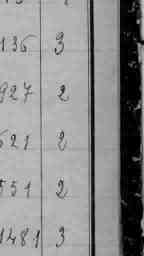 136 3
927 2
621 2
551 2
1481 3